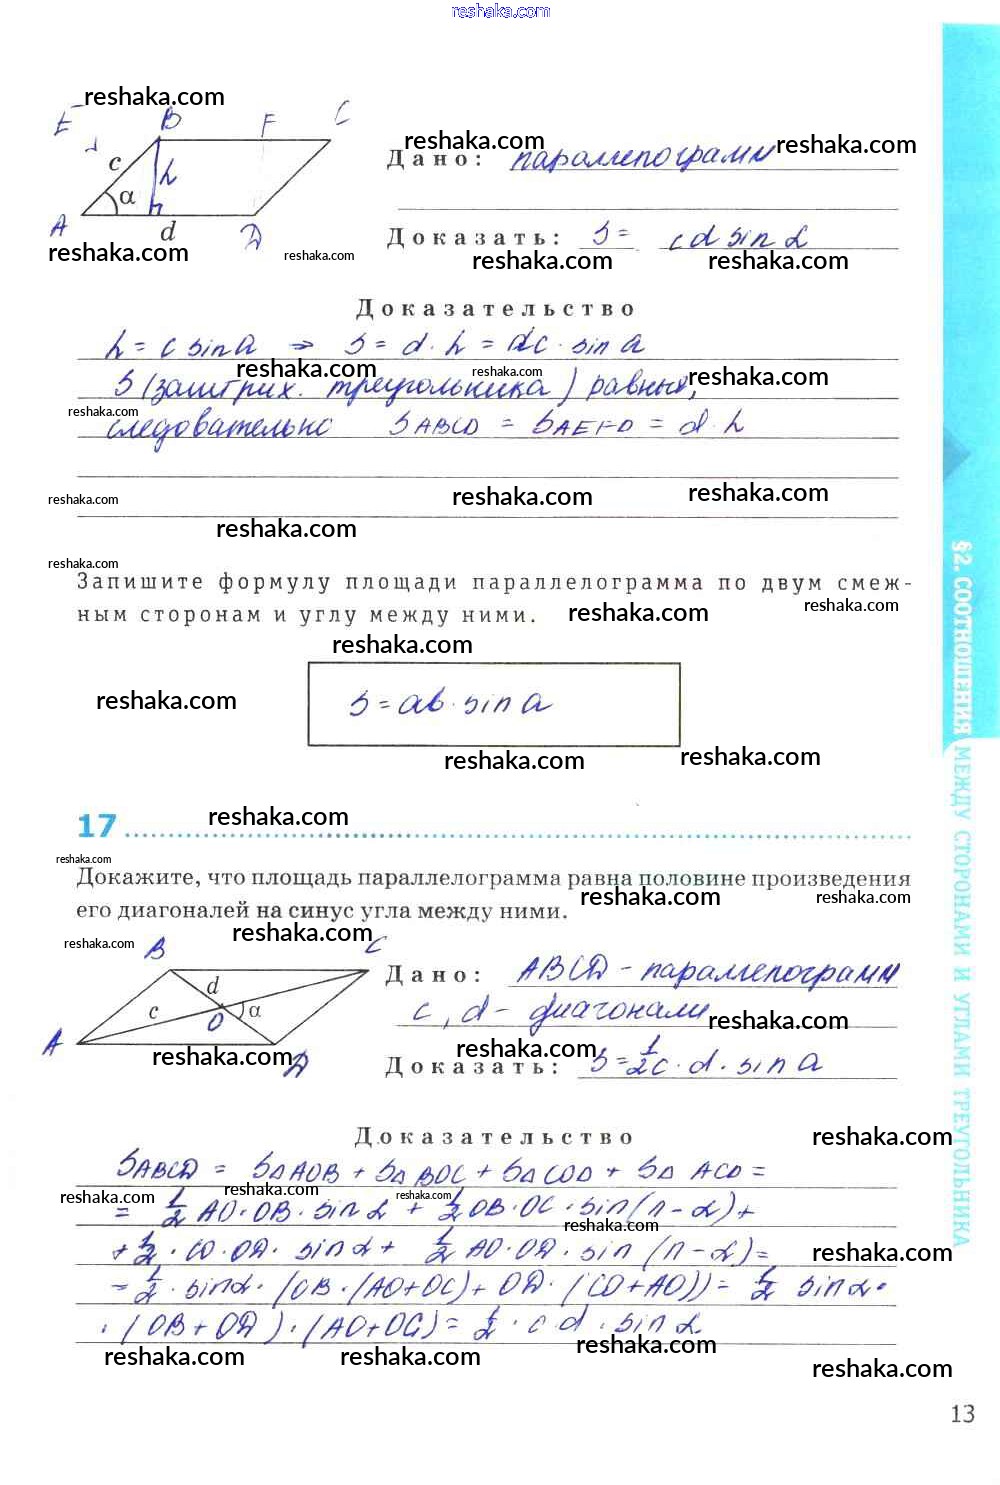 reshaka.com
reshaka.com
E B F C
c h α
A d D
reshaka.com
reshaka.com reshaka.com
Дано: параллелограмм
Доказать: S = cd sin α
reshaka.com reshaka.com reshaka.com reshaka.com
Доказательство
h = c sin α ⇒ S = d · h = dc · sin α
reshaka.com reshaka.com
S (заштрих. треугольника) равны, reshaka.com
reshaka.com reshaka.com
следовательно S ABCD = S AEFD = d · h
reshaka.com reshaka.com reshaka.com
reshaka.com
reshaka.com
Запишите формулу площади параллелограмма по двум смеж-
ным сторонам и углу между ними. reshaka.com reshaka.com
reshaka.com
reshaka.com S = ab · sin α
reshaka.com reshaka.com
17 reshaka.com
reshaka.com
Докажите, что площадь параллелограмма равна половине произведения
reshaka.com reshaka.com
его диагоналей на синус угла между ними.
reshaka.com reshaka.com
B C
d
c O α
A D
Дано: ABCD - параллелограмм
c, d - диагонали reshaka.com
reshaka.com reshaka.com
Доказать: S = 1/2 c · d · sin α
Доказательство reshaka.com
S ABCD = S△ AOB + S△ BOC + S△ COD + S△ ACD =
reshaka.com reshaka.com reshaka.com
= 1/2 AO · OB · sin α + 1/2 OB · OC · sin(π - α) +
reshaka.com
+ 1/2 · CO · OD · sin α + 1/2 AO · OD · sin (π - α) =
reshaka.com
= 1/2 · sin α · (OB · (AO + OC) + OD · (CO + AO)) = 1/2 sin α ·
· (OB + OD) · (AO + OC) = 1/2 · c · d · sin α.
reshaka.com reshaka.com reshaka.com reshaka.com
§2. СООТНОШЕНИЯ МЕЖДУ СТОРОНАМИ И УГЛАМИ ТРЕУГОЛЬНИКА
13